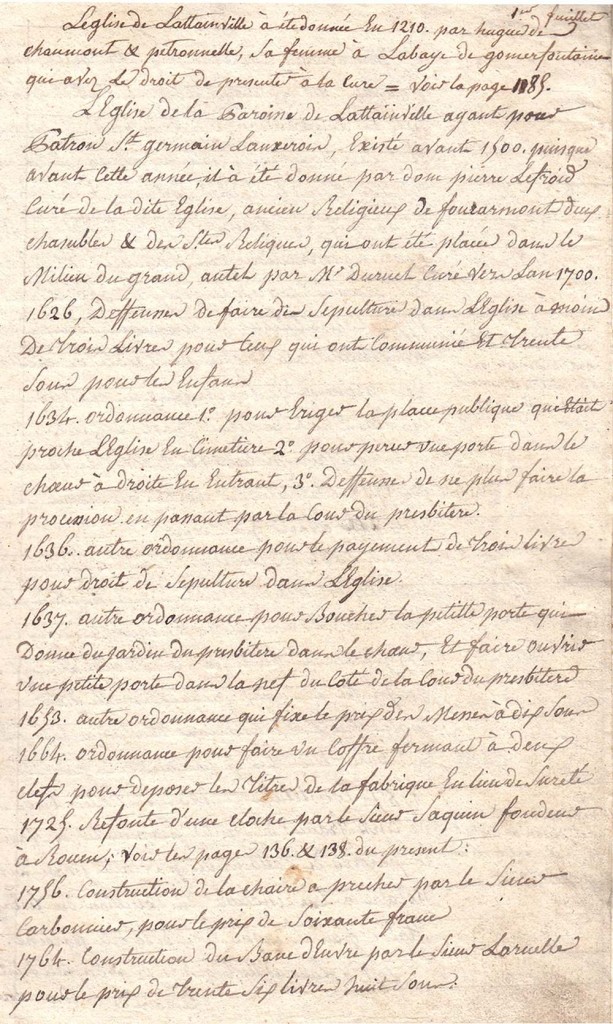 1er Juillet
Léglise de Lattainville à été donnée En 1210. par hugue de
chaumont & petronnelle, sa femme à Labaye de gomerfontaine
qui avez le droit de presenter à la Cure = voir la page 1185.
LEglise de la Paroisse de Lattainville ayant pour
Patron St. germain Lauxerois, Existé avant 1500. puisque
avant Cette année, il à été donné par dom pierre Lefroid
Curé de la dite Eglise, ancien Religieux de foucarmont deux
chasubles & des Stes Reliques, qui ont été placée dans le
Milieu du grand, autel par Mr Duruel Curé Vers Lan 1700.
1626, Deffenses de faire des Sepulture dans LEglise à moin
De trois Livres pour Ceux qui ont Communié Et trente
Sous pour les Enfans
1634. ordonnance 1o. pour Eriger la place publique qui Etait
proche LEglise En Cimetiere 2o. pour percer une porte dans le
choeur à droite En Entrant, 3o. Deffenses de ne plus faire la
procession en passant par la Cour du presbitere.
1636. autre ordonnance pour le payement de trois livres
pour droit de Sepulture dans LEglise.
1637. autre ordonnance pour Boucher la petitte porte qui
Donne du jardin du presbitere dans le choeur, Et faire ouvrir
une petite porte dans la nef du Coté de la Cour du presbitere
1653. autre ordonnance qui fixe le prix des Messes à dix Sous
1664. ordonnance pour faire un Coffre fermant à deux
clefs pour deposer les Titres de la fabrique En lieu de Sureté
1725. Refonte d'une cloche par le Sieur Jaquin fondeur
à Rouen; voir les page 136. & 138. du present:
1756. Construction de la chaire a precher par le Sieur
Carbonnier, pour le prix de Soixante francs
1764. Construction du Banc dEuvre par le Sieur Laruelle
pour le prix de trente Six livres huit Sous: